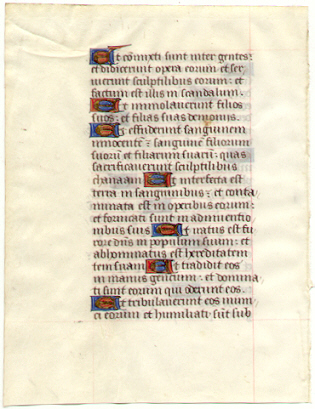 Et commixti sunt inter gentes: 
et didicerunt opera eorum et ser
uierunt sculptilibus eorum: et
factum est illis in scandalum.
Et immolauerunt filios
suos: et filias suas demoniis.
Et effuderunt sanguinem
innocentē: sanguinē filiorum
suorū et filiarum suarū: quas
sacrificauerunt sculptilibus
chanaam Et interfecta est
terra in sanguinibus: et conta
minata est in operibus eorum:
et fornicati sunt in adinuentio
nibus suis Et iratus est fu
rore dn̄s in populum suum: et
abhominatus est hereditatem
tem suam Et tradidit eos
in manus gentium: et domina
ti sunt eorum qui oderunt eos.
Et tribulauerunt eos inimi
ci eorum et humiliati sūt sub